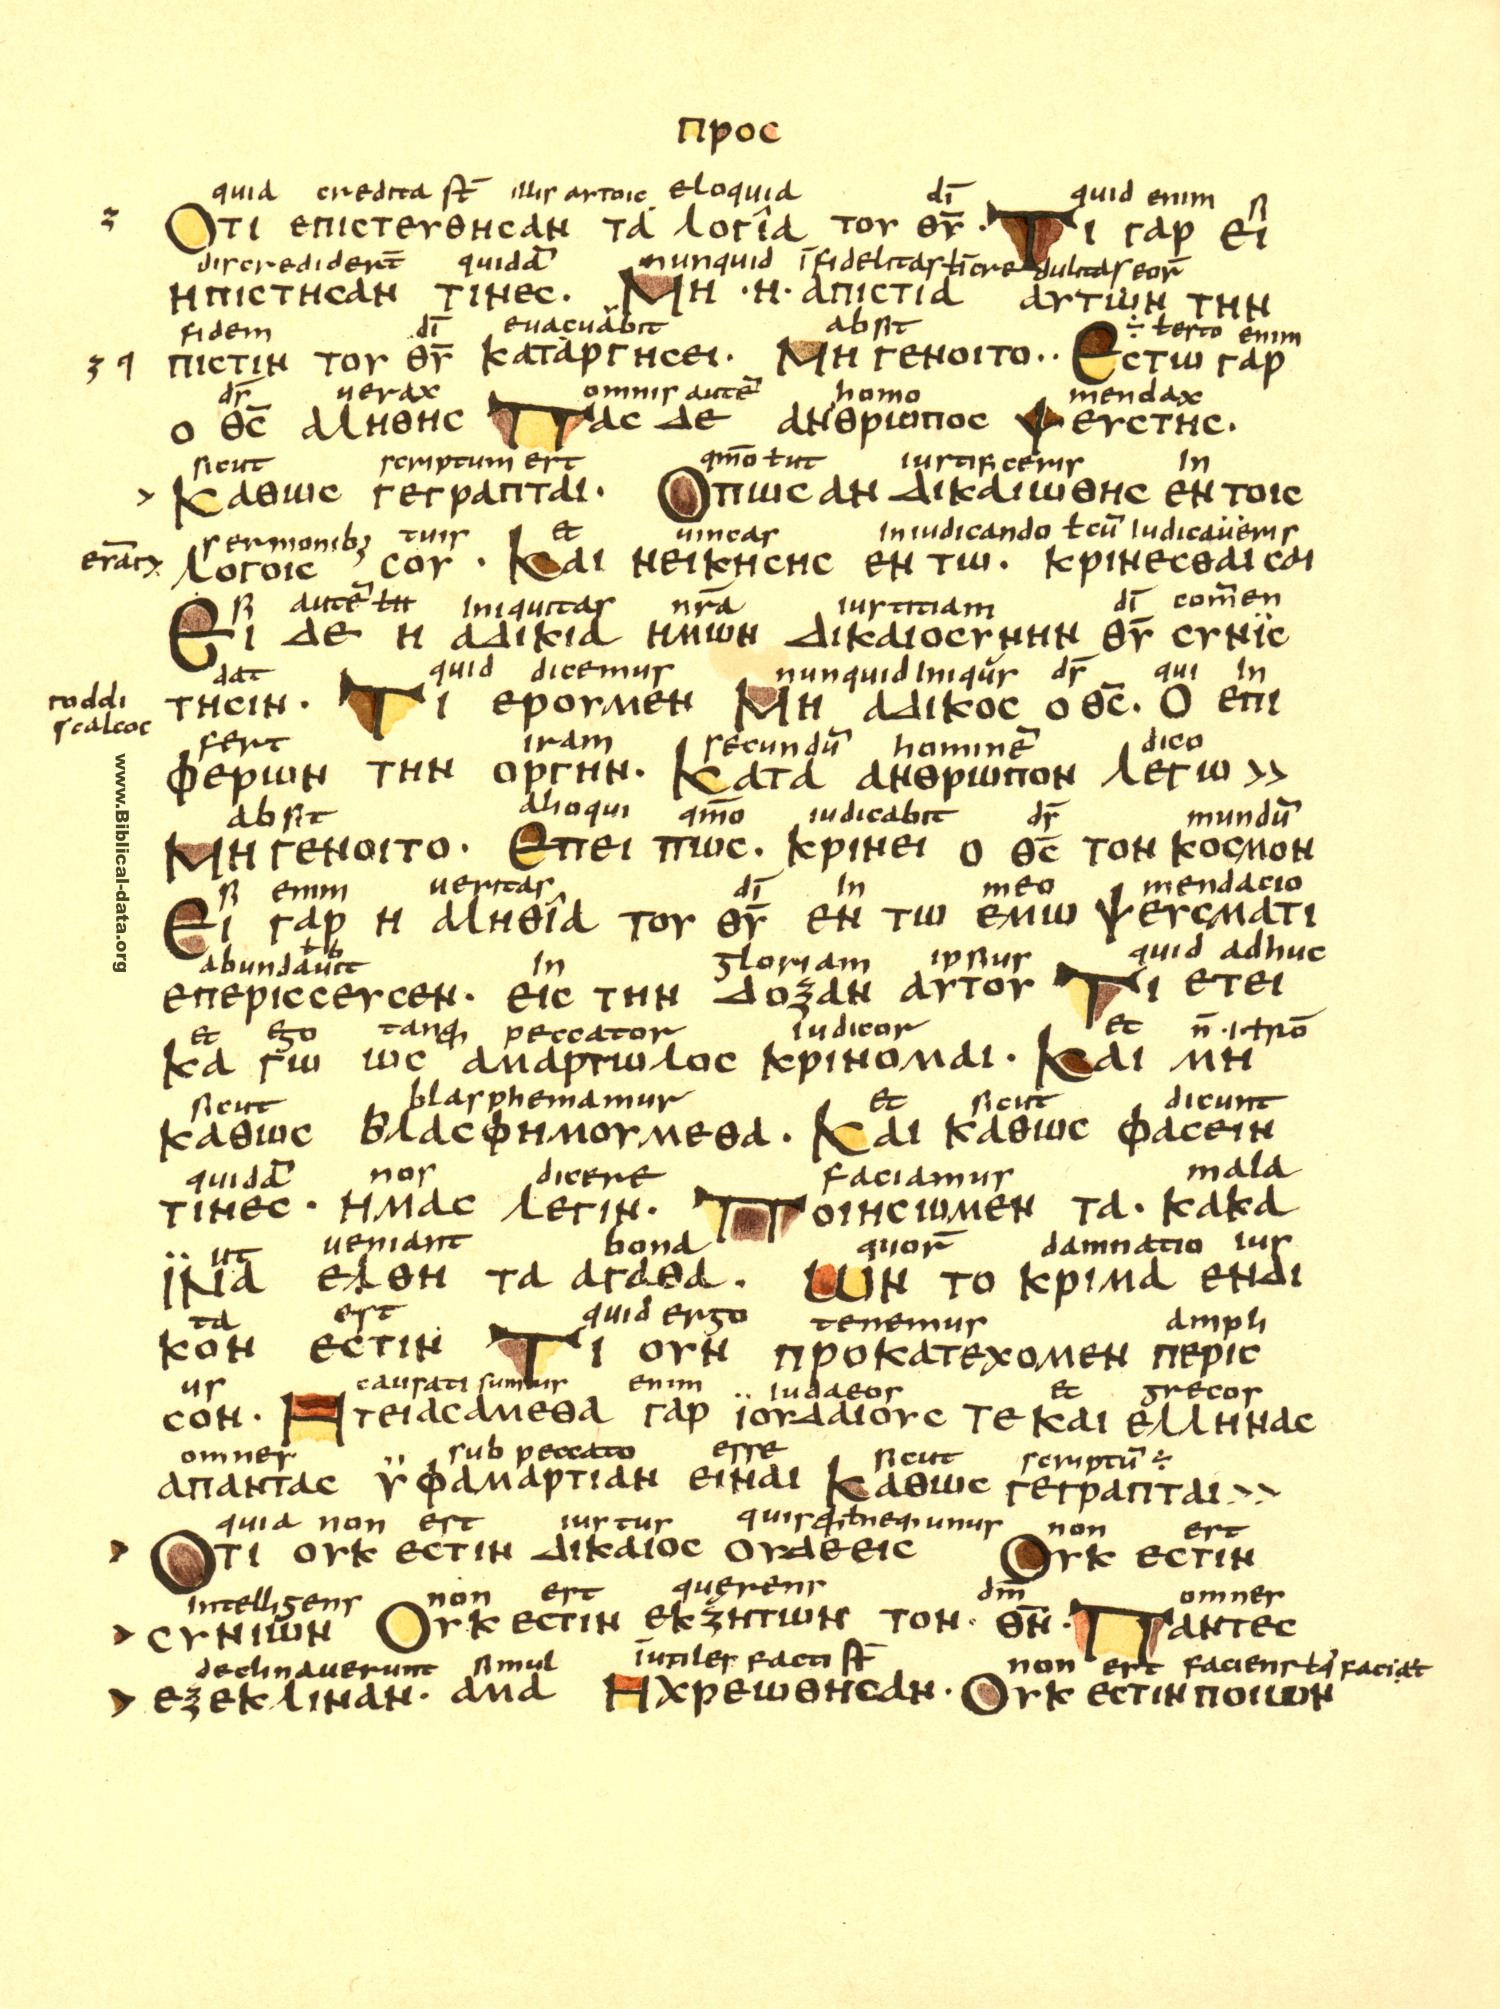 προσ
quia credita st̄ illis αυτοις eloquia dī quid enim si
ζ Οτι επιστευθησαν τα λογια του θ̅υ̅ · Τι γαρ ει
discredidert̄ quidā nunquid īfidelitas eor̄
ηπιστησαν τινες. Μη ·η· απιστια αυτων την
fidem dī evacuabit absit enim
πιστιν του θ̅υ̅ καταργησει. Μη γενοιτο·· Εστω γαρ
dr̄ uerax omnis autē homo mendax
ο θ̅ς̅ αληθης Πας δε ανθρωπος ψευστης.
sicut scriptum est qm̄o łut iustificeris in
> Καθως γεγραπται. Οπως αν δικαιωθης εν τοις
sermonibʒ tuis et uincas in iudicando łcū iudicaueris
λογοις σου · Και νεικησης εν τω. κρινεσθαι σαι
si autē iniquitas nr̄a iustitiam dī com̄en
Ει δε η αδικια ημων δικαιοσυνην θ̅υ̅ συνϊσ
dat quid dicemus nunquid iniqus dr̄ qui in
τησιν. Τι ερουμεν Μη αδικος ο θ̅ς̅. Ο επι
roddi
scalcoc
fert iram secundū hominē dico
φερων την οργην. Κατα ανθρωπον λεγω >>
absit alioqui qm̄o iudicabit dr̄ mundū
Μη γενοιτο. Επει πως. κρινει ο θ̅ς̅ τον κοσμον
si enim ueritas dī in meo mendacio
Ει γαρ η αληθια του θ̅υ̅ εν τω εμω ψευσματι
abundauit in gloriam ipsius quid adhuc
επερισσευσεν. εις την δοξαν αυτου Τι ετει
et ego tanq̄ peccator iudicor et n̄
κα γω ως αμαρτωλος κρινομαι. Και μη
sicut blasphemamur et sicut dicunt
καθως βλασφημουμεθα. Και καθως φασειν
quidā nos dicere faciamus mala
τινες · ημας λεγιν. Ποιησωμεν τα· κακα
ut ueniant bona quor̄ damnatio ius
ϊνα ελθη τα αγαθα. Ων το κριμα ενδι
ta est quid ergo tenemus amph
κον εστιν Τι ουν προκατεχομεν περισ
us causati sumus enim iudaeos et grecos
σον. Ητειασαμεθα γαρ ϊουδαιους τε και ελληνας
omnes sub peccato esse sicut scriptū ÷
απαντας ϋφαμαρτιαν ειναι Καθως γεγραπται >>
quia non est iustus non est
> Οτι ουκ εστιν δικαιος ουδεεις Ουκ εστιν
intelligens non est querens dm̄ omnes
> συνιων Ουκ εστιν εκζητων τον· θ̅ν̅. Παντες
declinauerunt simul īutiles facti st̄ non est faciens łq̄ faciat
> εξεκλιναν. αμα Ηχρεωθησαν. Ουκ εστιν ποιων
www.Biblical-data.org